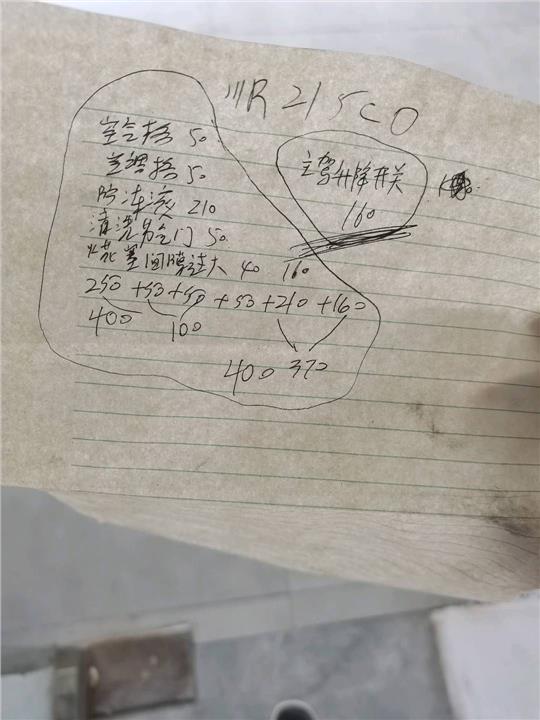 川R215CO
空气格 50
空调格 50
防冻液 210
清洗节气门 50
火花塞间隙过大 40 160
250 +50+50 +50+210 +160
400 100
400 370
主驾升降开关
160